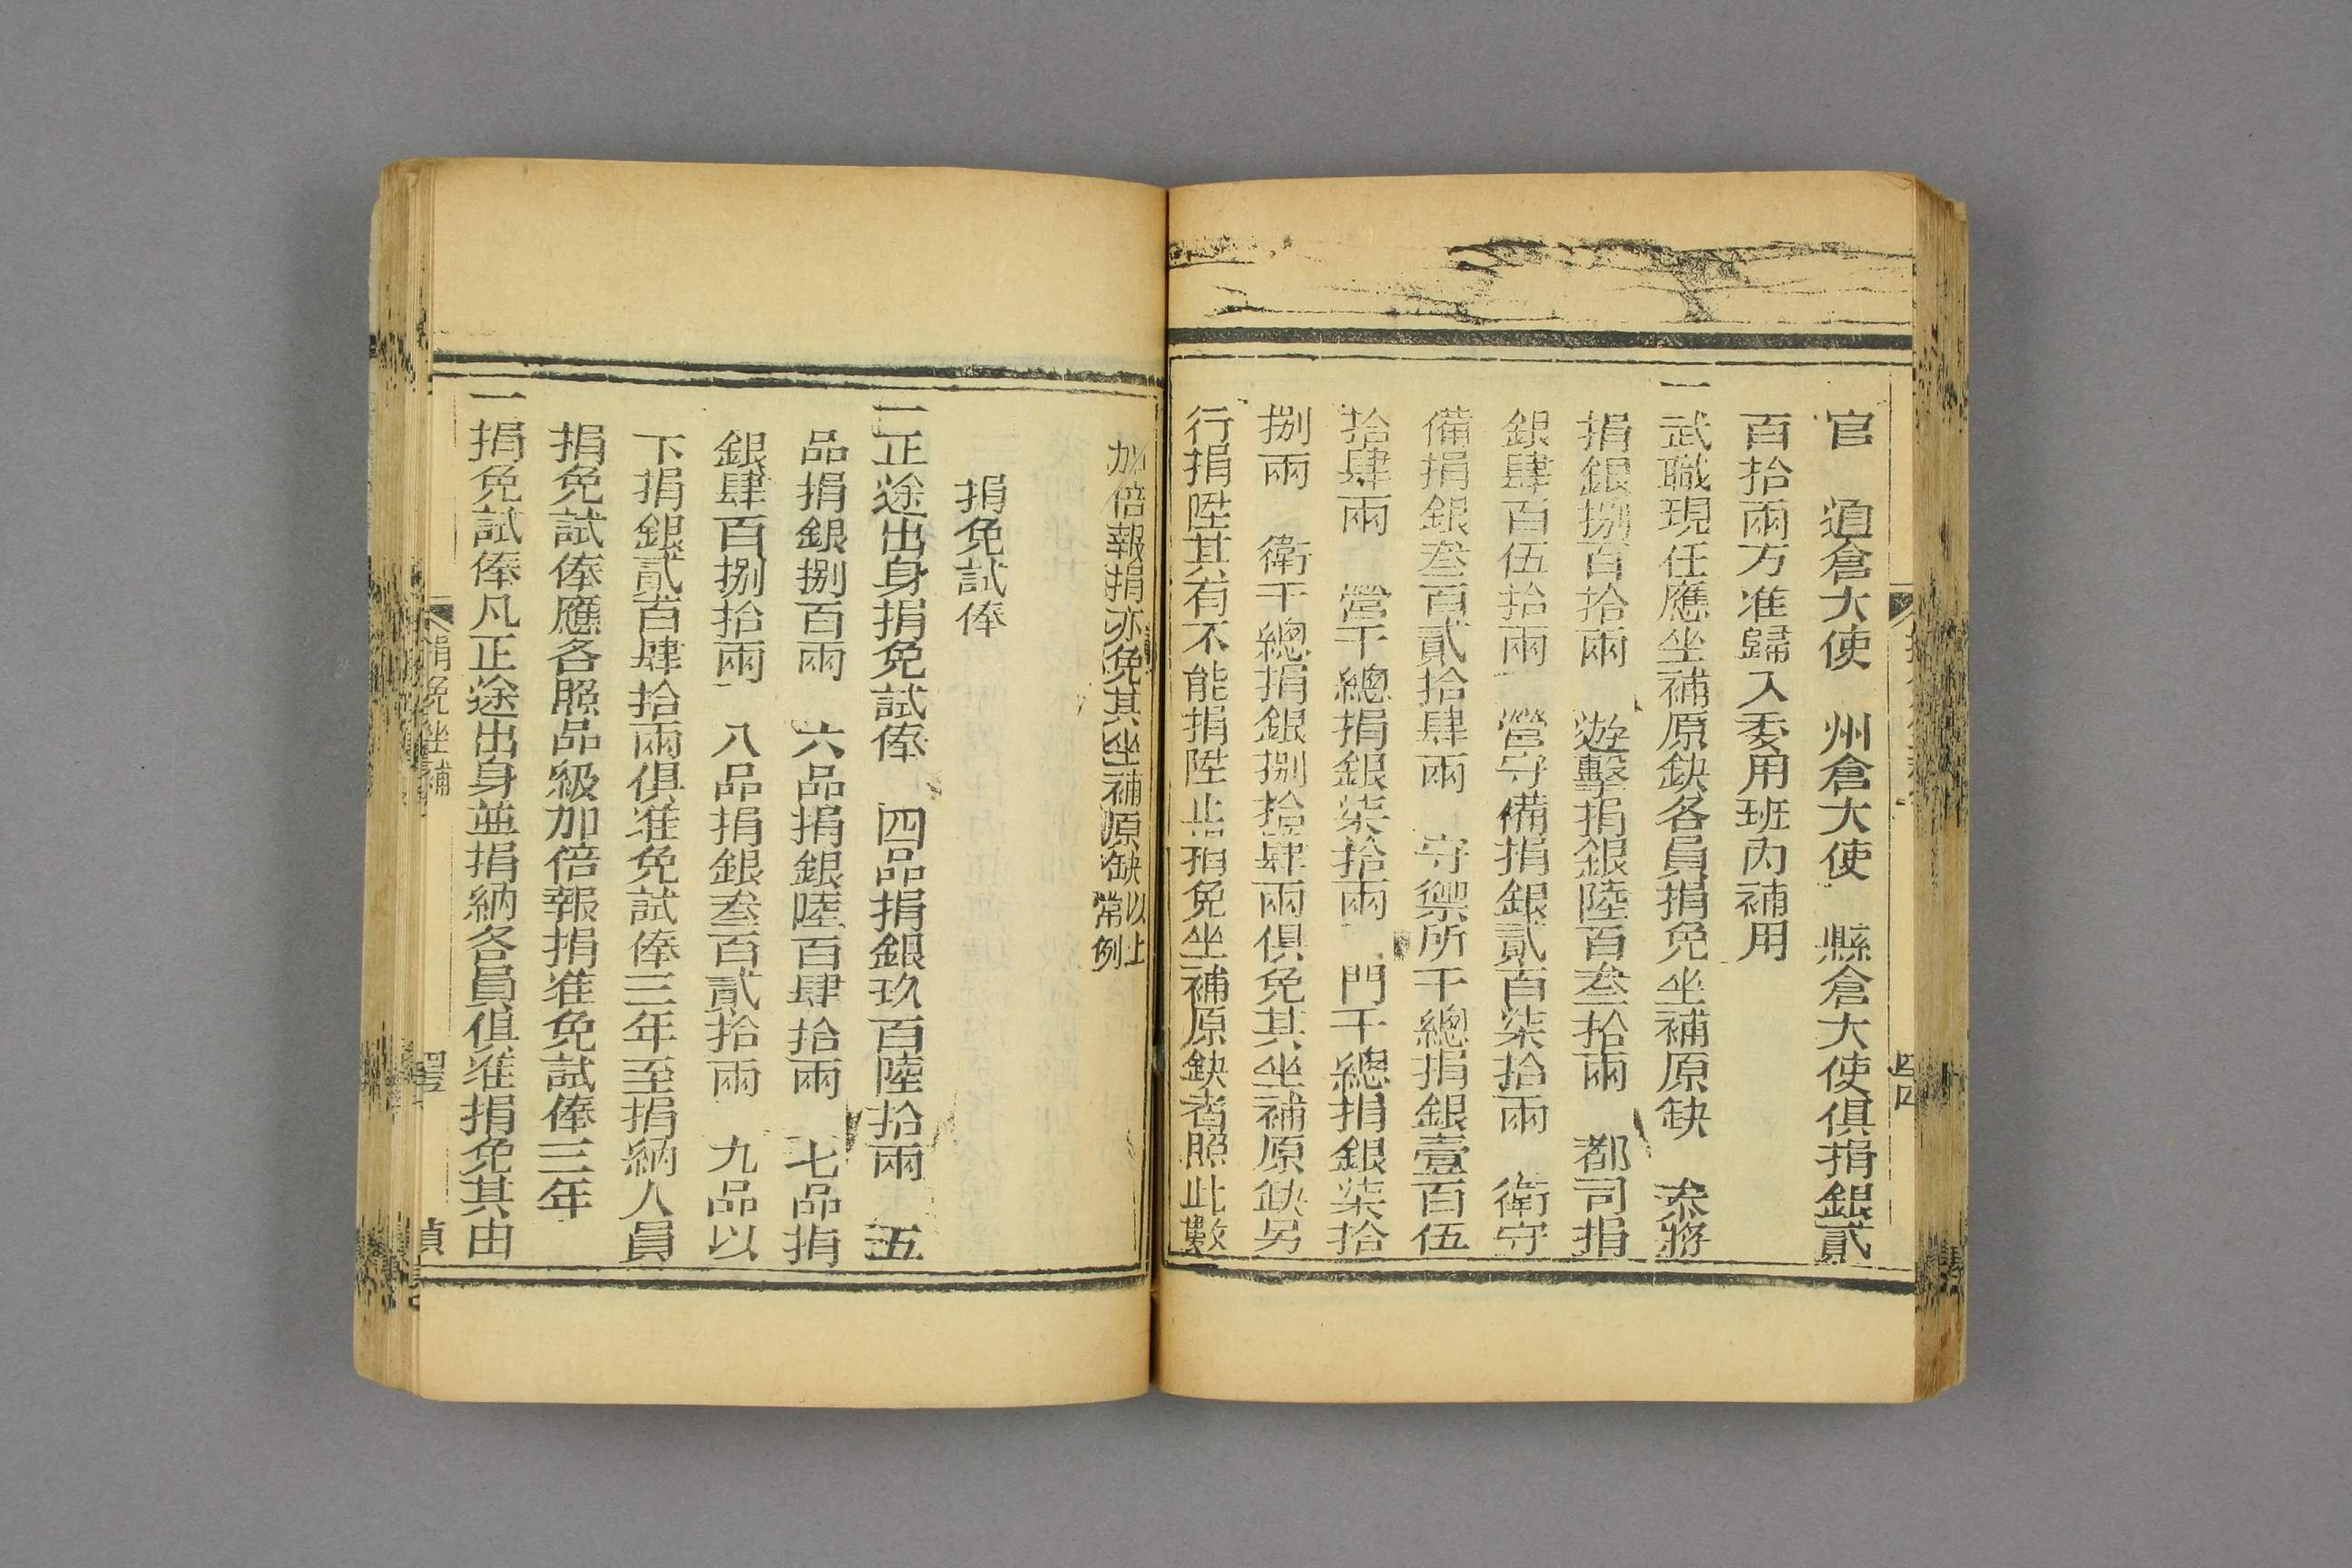 官　道倉大使　州倉大使　縣倉大使俱捐銀貳
百拾兩方准歸入委用班內補用
一武職現任應坐補原缺各員捐免坐補原缺　叅將
捐銀捌百拾兩　遊擊捐銀陸百叁拾兩　都司捐
銀肆百伍拾兩　營守備捐銀貳百柒拾兩　衛守
備捐銀叁百貳拾肆兩　守禦所千總捐銀壹百伍
拾肆兩　營千總捐銀柒拾兩　門千總捐銀柒拾
捌兩　衛千總捐銀捌拾肆兩俱免其坐補原缺另
行捐陞其有不能捐陞止捐免坐補原缺者照此數
加倍報捐亦免其坐補原缺以上常例
捐免試俸
一正途出身捐免試俸　四品捐銀玖百陸拾兩　五
品捐銀捌百兩　六品捐銀陸百肆拾兩　七品捐
銀肆百捌拾兩　八品捐銀叁百貳拾兩　九品以
下捐銀貳百肆拾兩俱准免試俸三年至捐納人員
捐免試俸應各照品級加倍報捐准免試俸三年
一捐免試俸凡正途出身並捐納各員俱准捐免其由
捐免坐補
貞